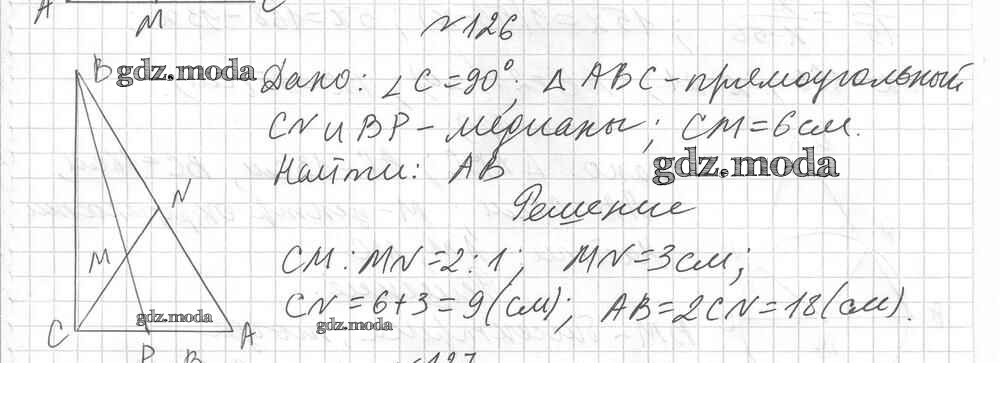 A M C
№126
B gdz.moda Дано: ∠C=90°; △ ABC-прямоугольный
CN и BP - медианы; CM=6см.
gdz.moda
Найти: AB
Решение
N
M CM : MN=2:1; MN=3см;
CN=6+3=9(см); AB=2CN=18(см).
gdz.moda gdz.moda
C A
P B №127